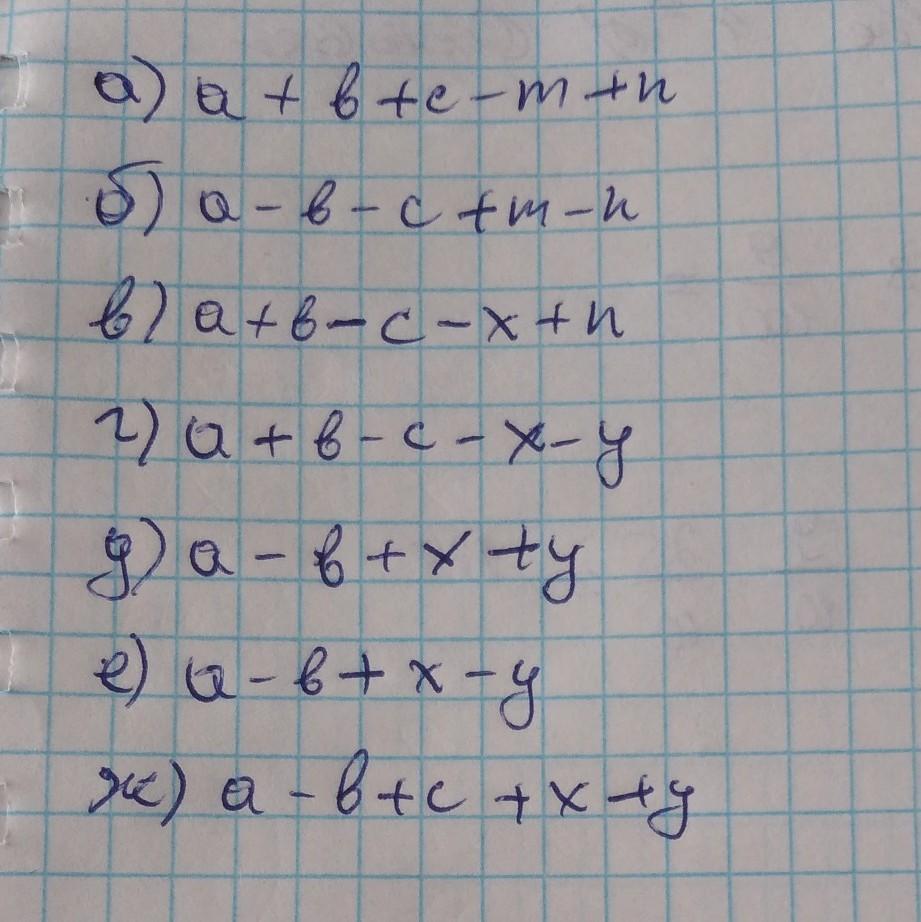 а) a + b + c - m + n
б) a - b - c + m - n
в) a + b - c - x + n
г) a + b - c - x - y
д) a - b + x + y
е) a - b + x - y
ж) a - b + c + x + y